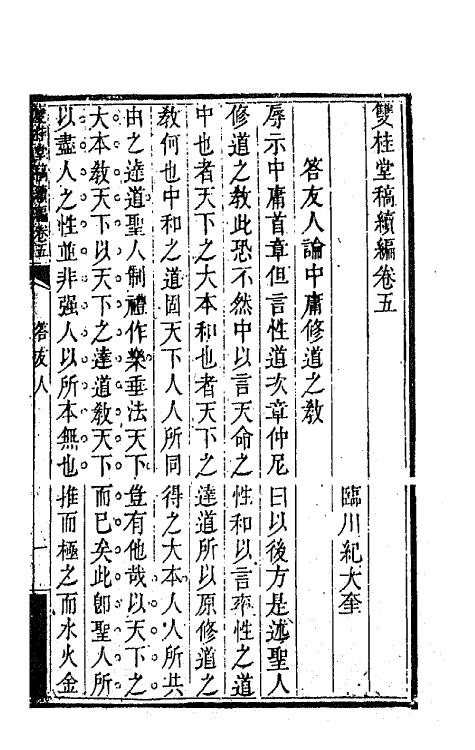 雙桂堂稿續編卷五
臨川紀大奎
答友人論中庸修道之教
辱示中庸首章但言性道次章仲尼曰以後方是述聖人
修道之教此恐不然中以言天命之性和以言率性之道
中也者天下之大本和也者天下之達道所以原修道之
教何也中和之道固天下人人所同得之大本人人所共
由之達道聖人制禮作樂垂法天下豈有他哉以天下之
大本教天下以天下之達道教天下而已矣此卽聖人所
以盡人之性並非强人以所本無也推而極之而水火金
雙桂堂稿續編卷五
答友人
一